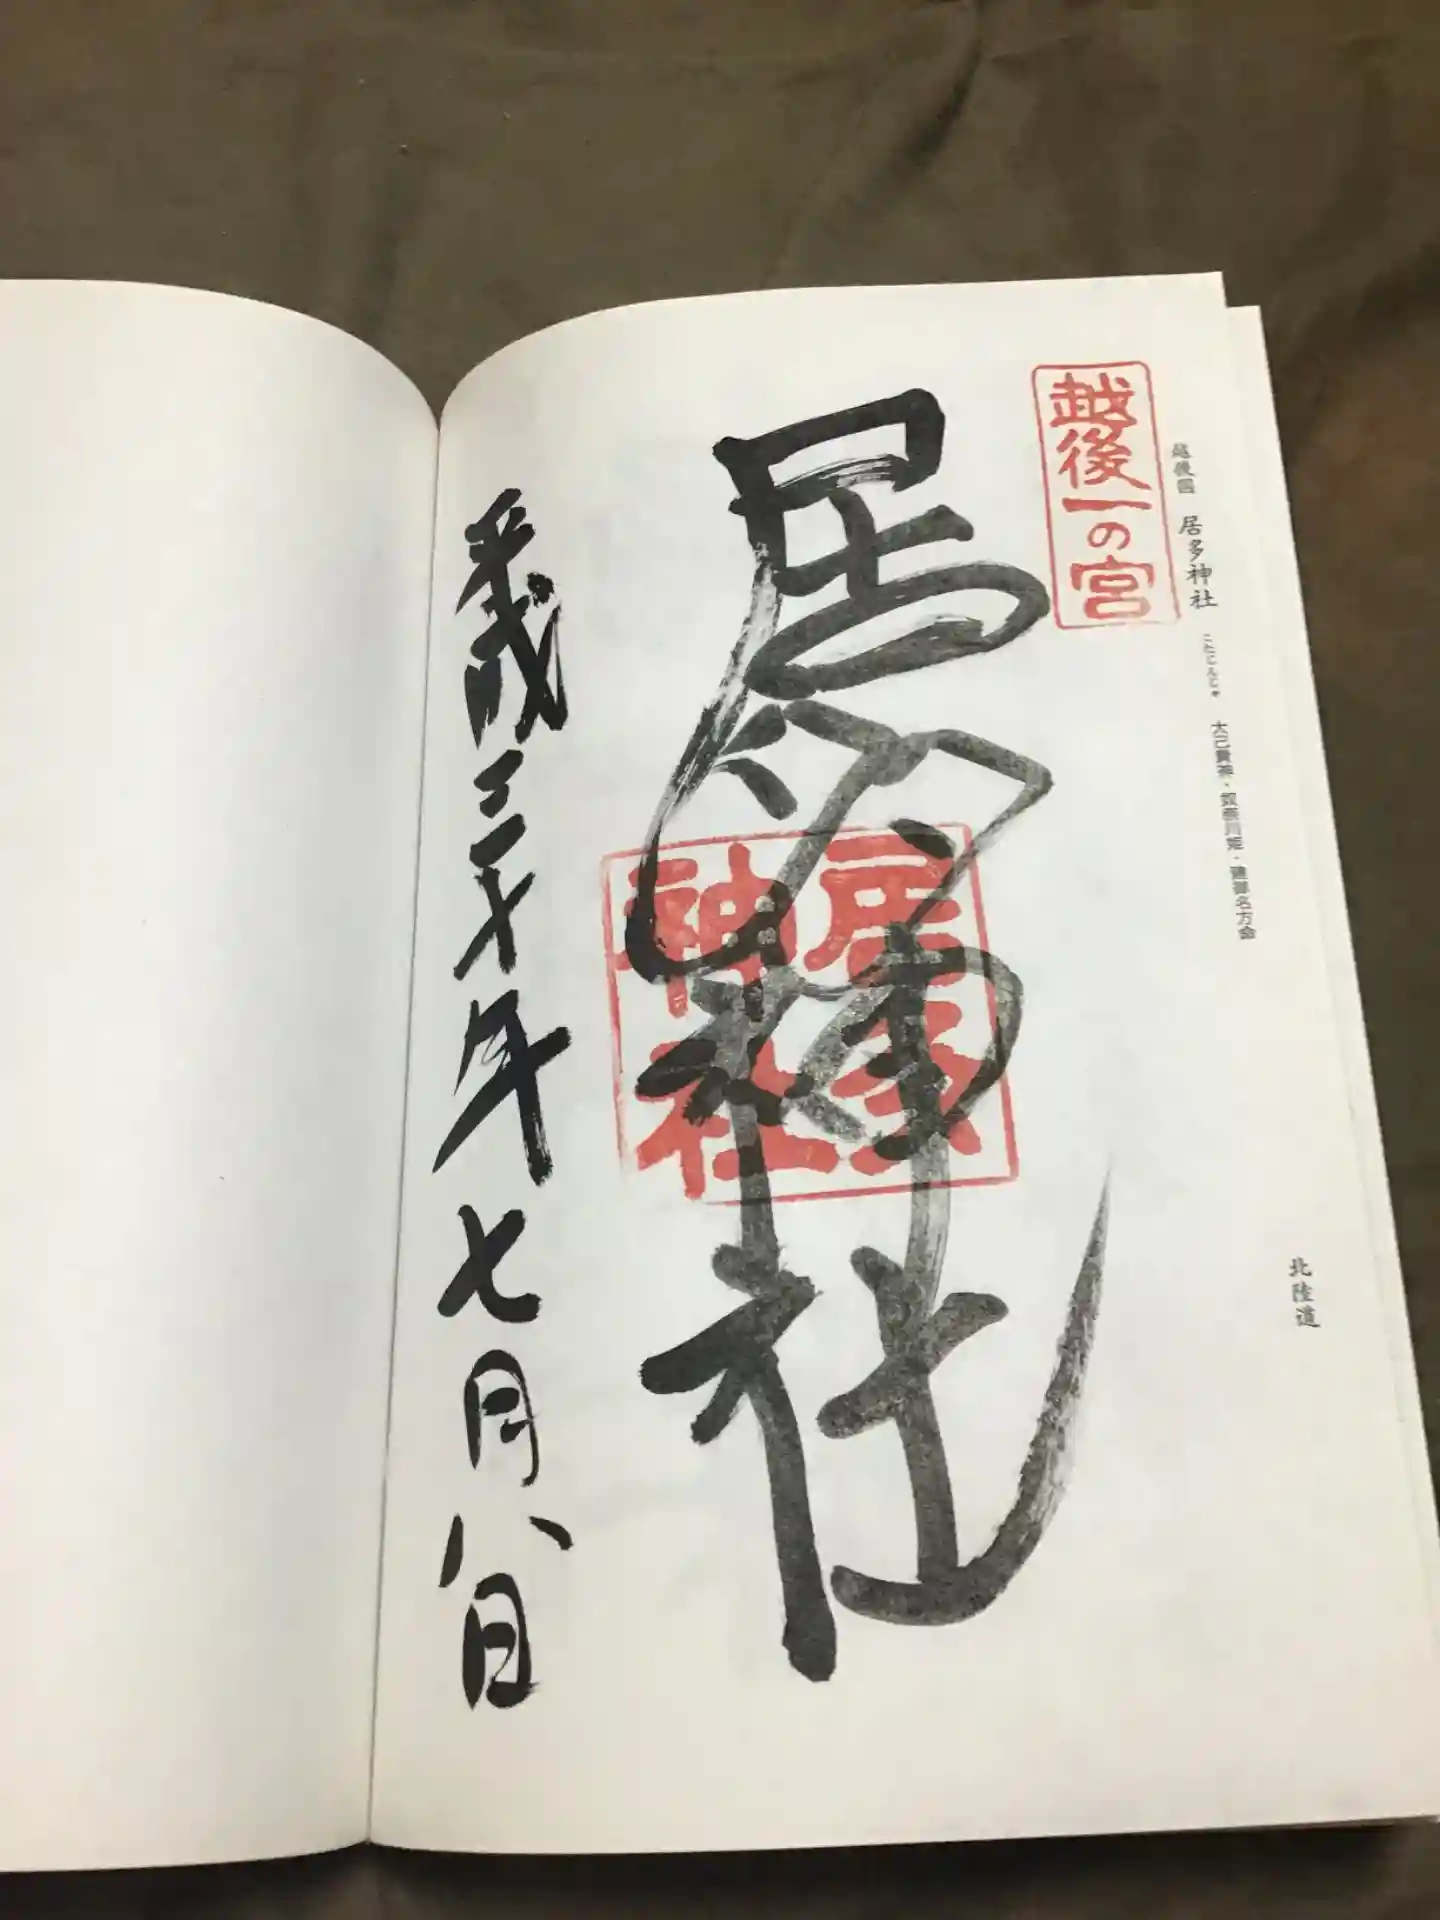 越後国 居多神社 こたじんじゃ 大己貴神・奴奈川姫・建御名方命
北陸道
越後一の宮
居多神社
居多
神社
平成三十年七月八日